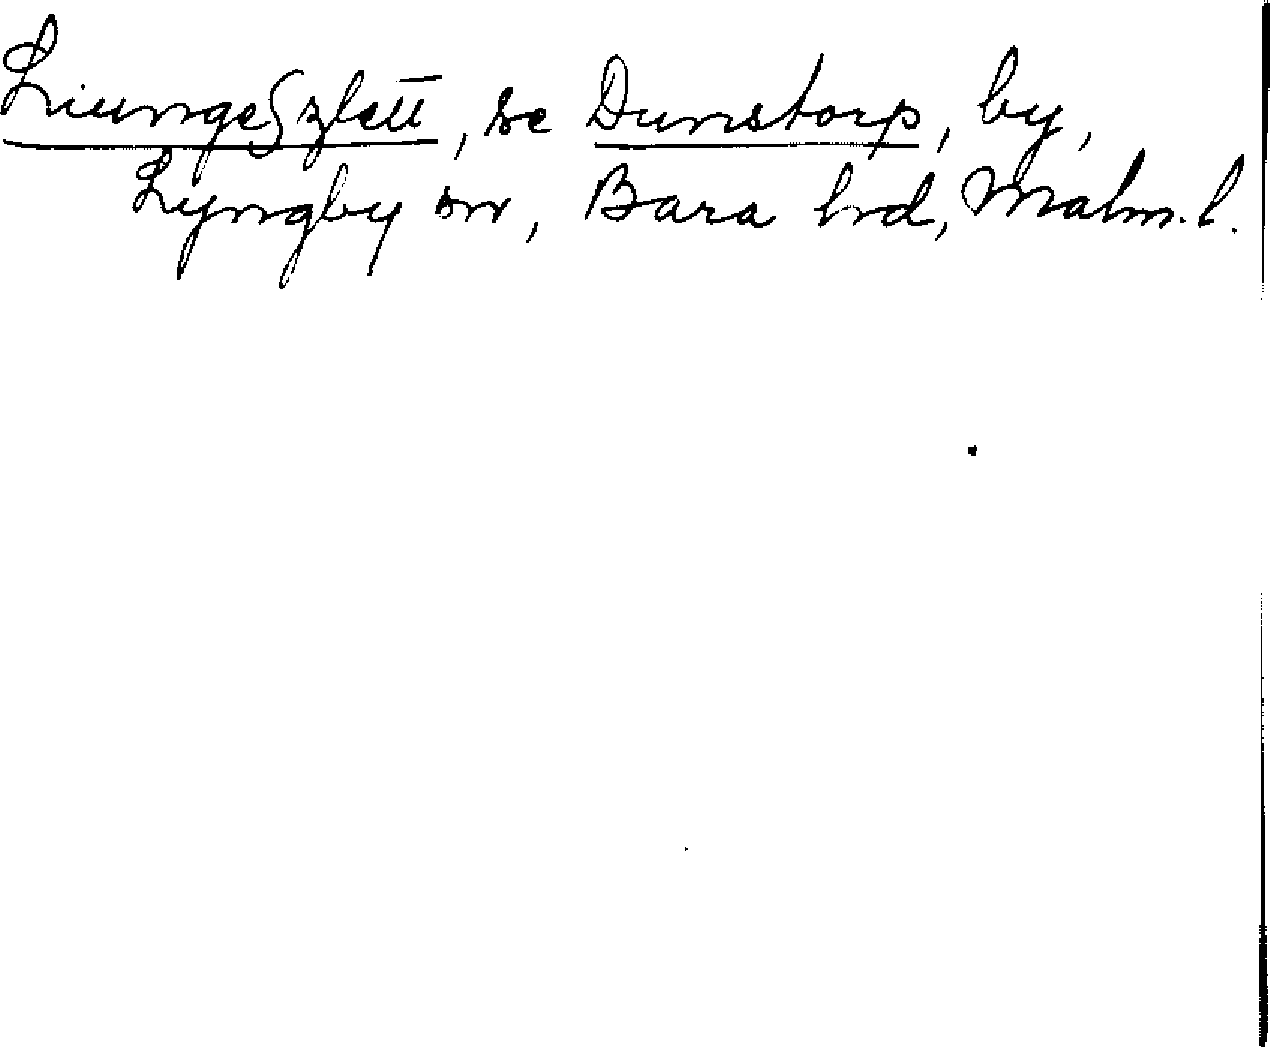 Liungeſzlett, se Dunstorp, by,
Lyngby sn, Bara hrd, Malm. l.